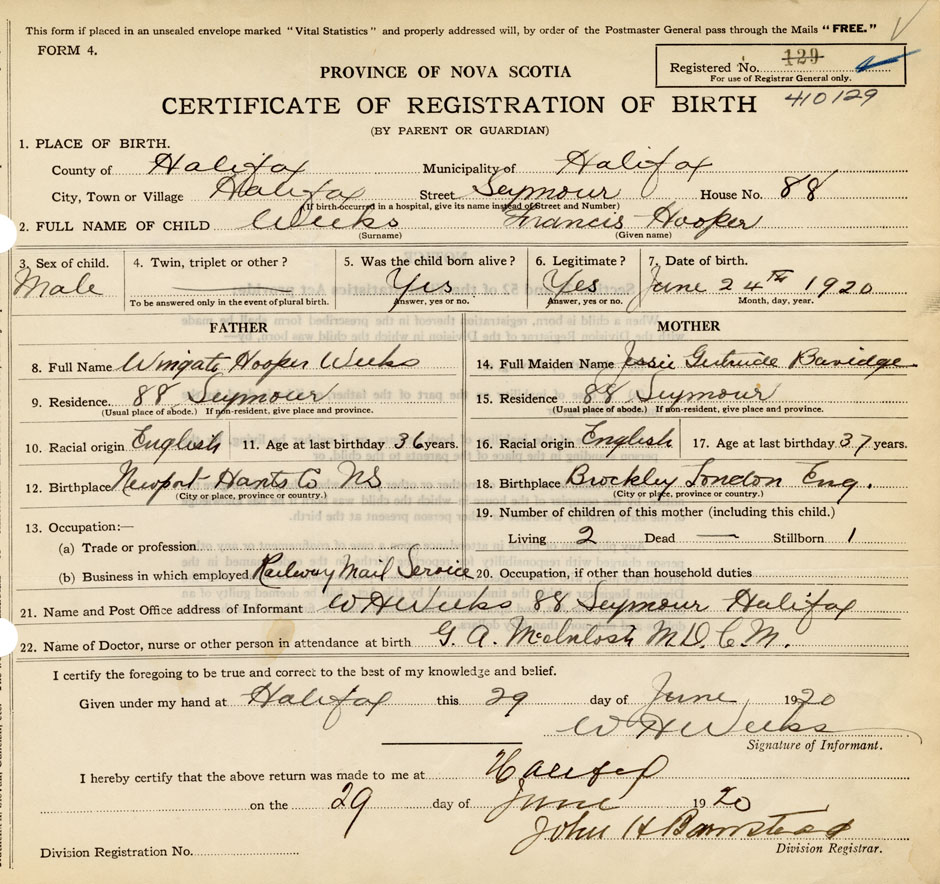 This form if placed in an unsealed envelope marked "Vital Statistics" and properly addressed will, by order of the Postmaster General pass through the Mails "FREE."
FORM 4.
Registered No. 129
For use of Registrar General only.
PROVINCE OF NOVA SCOTIA
CERTIFICATE OF REGISTRATION OF BIRTH 410129
(BY PARENT OR GUARDIAN)
1. PLACE OF BIRTH.
County of Halifax Municipality of Halifax
City, Town or Village Halifax Street Seymour House No. 88
(If birth occurred in a hospital, give its name instead of Street and Number)
2. FULL NAME OF CHILD Weeks Francis Hooper
(Surname) (Given name)
3. Sex of child. 4. Twin, triplet or other? 5. Was the child born alive? 6. Legitimate? 7. Date of birth.
Male Yes Yes June 24TH 1920
To be answered only in the event of plural birth. Answer, yes or no. Answer, yes or no. Month, day, year.
FATHER MOTHER
8. Full Name Wingate Hooper Weeks 14. Full Maiden Name Jessie Gertrude Bavidge
9. Residence. 88 Seymour 15. Residence 88 Seymour
(Usual place of abode.) If non-resident, give place and province. (Usual place of abode.) If non-resident, give place and province.
10. Racial origin English 11. Age at last birthday 36 years. 16. Racial origin English 17. Age at last birthday 37 years.
12. Birthplace Newport Hants Co NS 18. Birthplace Brockley London Eng.
(City or place, province or country.) (City or place, province or country.)
13. Occupation:— 19. Number of children of this mother (including this child.)
(a) Trade or profession Living 2 Dead — Stillborn 1
(b) Business in which employed Railway Mail Service 20. Occupation, if other than household duties
21. Name and Post Office address of Informant W H Weeks 88 Seymour Halifax
22. Name of Doctor, nurse or other person in attendance at birth G. A. McIntosh M.D.C.M.
I certify the foregoing to be true and correct to the best of my knowledge and belief.
Given under my hand at Halifax this 29 day of June 1920
W H Weeks
Signature of Informant.
I hereby certify that the above return was made to me at Halifax
on the 29 day of June 1920
John H Barnstead
Division Registration No. Division Registrar.